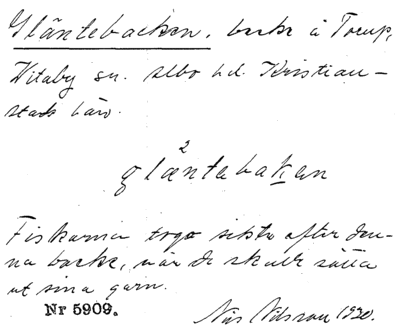 Gläntebacken, backe å Torup,
Witaby sn. Albo hd. Kristian-
stads län.
2
glæntebakan
Fiskarna togo sikte efter den-
na backe, när de skulle sätta
ut sina garn.
Nr 5909.
Nils Nilsson 1920.